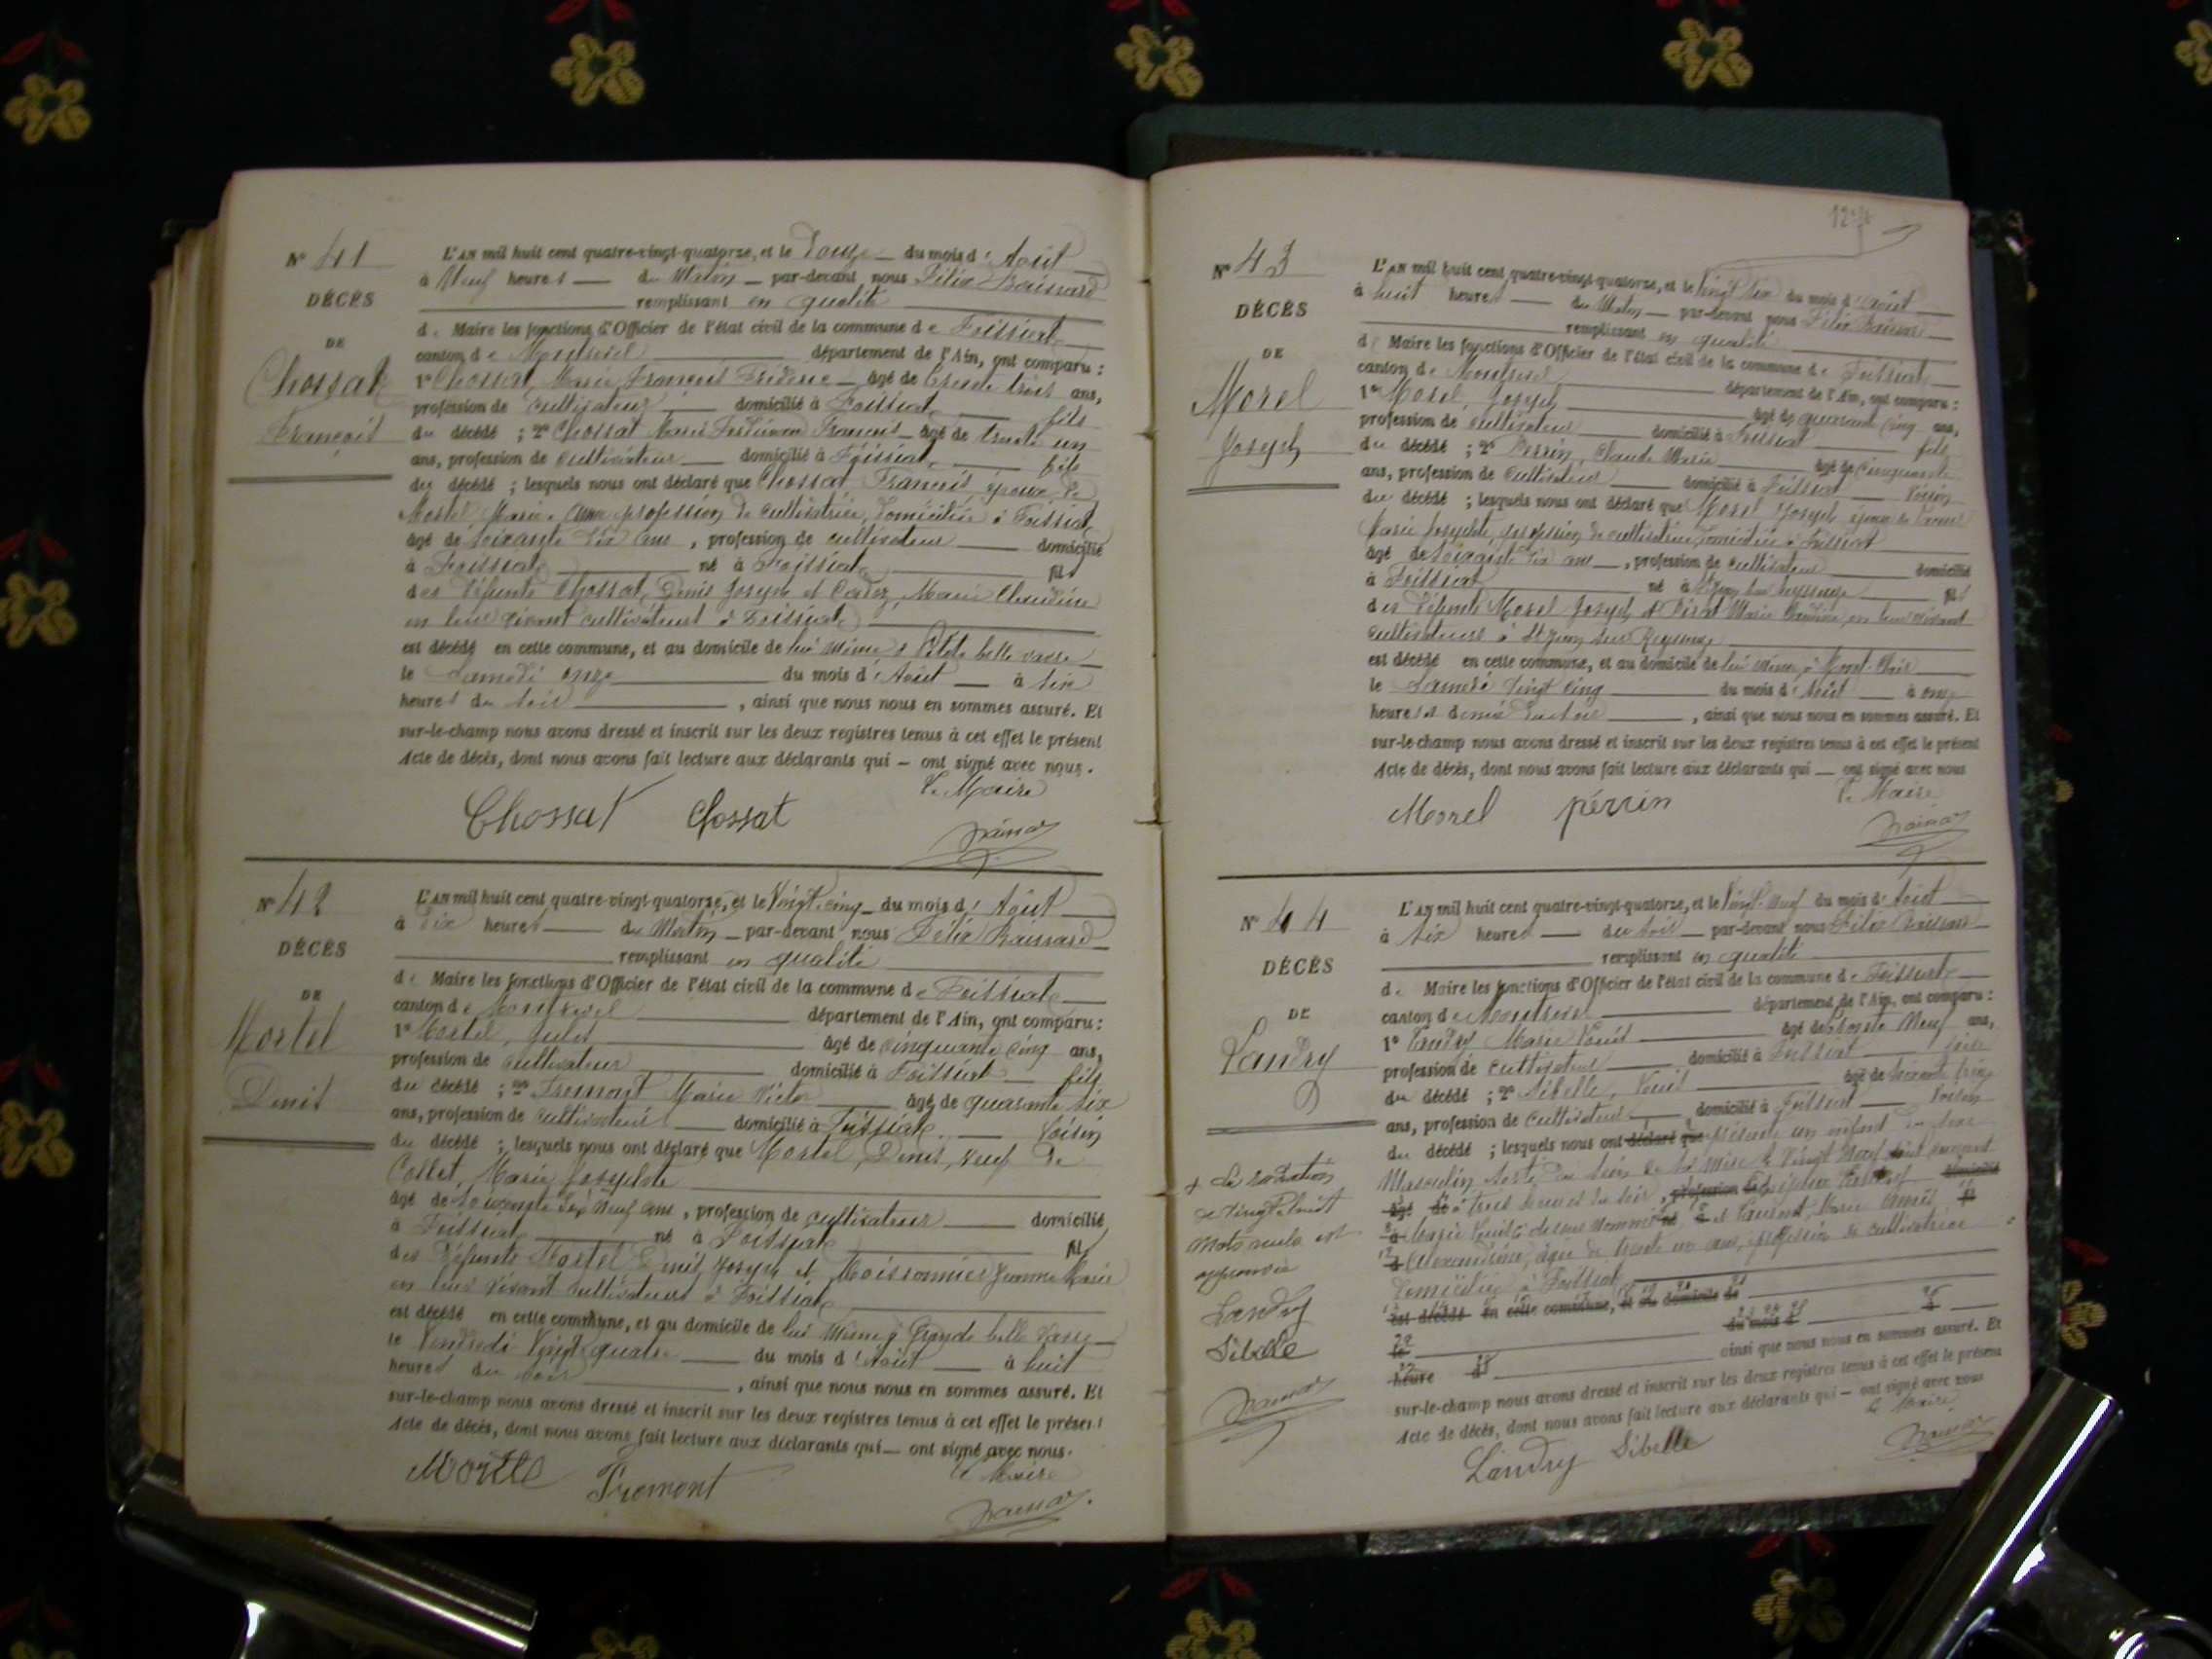 N° 41
DÉCÈS
DE
Chossat
François
L'AN mil huit cent quatre-vingt-quatorze, et le Douze du mois d'Août
à Neuf heures du Matin par-devant nous Félix
remplissant en qualité
de Maire les fonctions d'Officier de l'état civil de la commune de Foissiat
canton de Montrevel département de l'Ain, ont comparu :
1° Chossat, Marie François Frédéric âgé de trente trois ans,
profession de cultivateur domicilié à Foissiat fils
du décédé ; 2° Chossat Marie François âgé de trente un
ans, profession de cultivateur domicilié à Foissiat fils
du décédé ; lesquels nous ont déclaré que Chossat François époux de
Mortel Marie profession de cultivatrice, domiciliée à Foissiat
âgé de soixante dix ans, profession de cultivateur domicilié
à Foissiat né à Foissiat fils
des défunts Chossat, Denis Joseph et Marie Claudine
en leur vivant cultivateurs à Foissiat
est décédé en cette commune, et au domicile de lui même à Petite belle vavre
le Samedi onze du mois d'Août à six
heures du soir, ainsi que nous nous en sommes assuré. Et
sur-le-champ nous avons dressé et inscrit sur les deux registres tenus à cet effet le présent
Acte de décès, dont nous avons fait lecture aux déclarants qui — ont signé avec nous.
Le Maire
Chossat Chossat
N° 42
DÉCÈS
DE
Mortel
Denis
L'AN mil huit cent quatre-vingt-quatorze, et le Vingt cinq du mois d'Août
à Dix heures du Matin par-devant nous Félix
remplissant en qualité
de Maire les fonctions d'Officier de l'état civil de la commune de Foissiat
canton de Montrevel département de l'Ain, ont comparu :
1° Mortel, Jules âgé de cinquante cinq ans,
profession de cultivateur domicilié à Foissiat fils
du décédé ; 2° Marie Victor âgé de quarante six
ans, profession de cultivateur domicilié à Foissiat voisin
du décédé ; lesquels nous ont déclaré que Mortel, Denis, veuf de
Collet, Marie Josephte
âgé de soixante dix neuf ans, profession de cultivateur domicilié
à Foissiat né à Foissiat fils
des défunts Mortel Denis Joseph et Moissonnier Jeanne Marie
en leur vivant cultivateurs à Foissiat
est décédé en cette commune, et au domicile de lui même à Grande belle vavre
le Vendredi Vingt quatre du mois d'Août à huit
heures du soir, ainsi que nous nous en sommes assuré. Et
sur-le-champ nous avons dressé et inscrit sur les deux registres tenus à cet effet le présent
Acte de décès, dont nous avons fait lecture aux déclarants qui — ont signé avec nous.
Le Maire
N° 43
DÉCÈS
DE
Morel
Joseph
L'AN mil huit cent quatre-vingt-quatorze, et le Vingt six du mois d'Août
à huit heures du Matin par-devant nous Félix
remplissant en qualité
de Maire les fonctions d'Officier de l'état civil de la commune de Foissiat
canton de Montrevel département de l'Ain, ont comparu :
1° Morel Joseph âgé de quarante cinq ans,
profession de cultivateur domicilié à Foissiat fils
du décédé ; 2° Perrin, Claude Marie âgé de cinquante
ans, profession de cultivateur domicilié à Foissiat voisin
du décédé ; lesquels nous ont déclaré que Morel Joseph époux de
Marie Josephte, profession de cultivatrice, domiciliée à Foissiat
âgé de soixante dix ans, profession de cultivateur domicilié
à Foissiat né à St Jean sur Reyssouze fils
des défunts Morel Joseph et Marie Claudine, en leur vivant
cultivateurs à St Jean sur Reyssouze
est décédé en cette commune, et au domicile de lui même à
le Samedi vingt cinq du mois d'Août à onze
heures et demie du soir, ainsi que nous nous en sommes assuré. Et
sur-le-champ nous avons dressé et inscrit sur les deux registres tenus à cet effet le présent
Acte de décès, dont nous avons fait lecture aux déclarants qui — ont signé avec nous
Le Maire
Morel perrin
N° 44
DÉCÈS
DE
Landry
L'AN mil huit cent quatre-vingt-quatorze, et le Vingt neuf du mois d'Août
à six heures du soir par-devant nous Félix
remplissant en qualité
de Maire les fonctions d'Officier de l'état civil de la commune de Foissiat
canton de Montrevel département de l'Ain, ont comparu :
1° Landry Marie Louis âgé de trente neuf ans,
profession de cultivateur domicilié à Foissiat père
du décédé ; 2° Sibelle, Louis âgé de
ans, profession de cultivateur domicilié à Foissiat voisin
du décédé ; lesquels nous ont déclaré que présenté un enfant du sexe
Masculin sorti du sein de sa mère le Vingt neuf août courant
âgé de à trois heures du soir, profession de domicilié
Marie Louis ci dessus nommé né à et Marie fils
Alexandrine, âgée de trente un ans, profession de cultivatrice
domiciliée à Foissiat
est décédé en cette commune, et au domicile de
du mois d' à
le
heure d ainsi que nous nous en sommes assuré. Et
sur-le-champ nous avons dressé et inscrit sur les deux registres tenus à cet effet le présent
Acte de décès, dont nous avons fait lecture aux déclarants qui — ont signé avec nous
Le Maire
Landry Sibelle
+ La radiation
de vingt huit
mots nuls est
approuvée
Landry
Sibelle